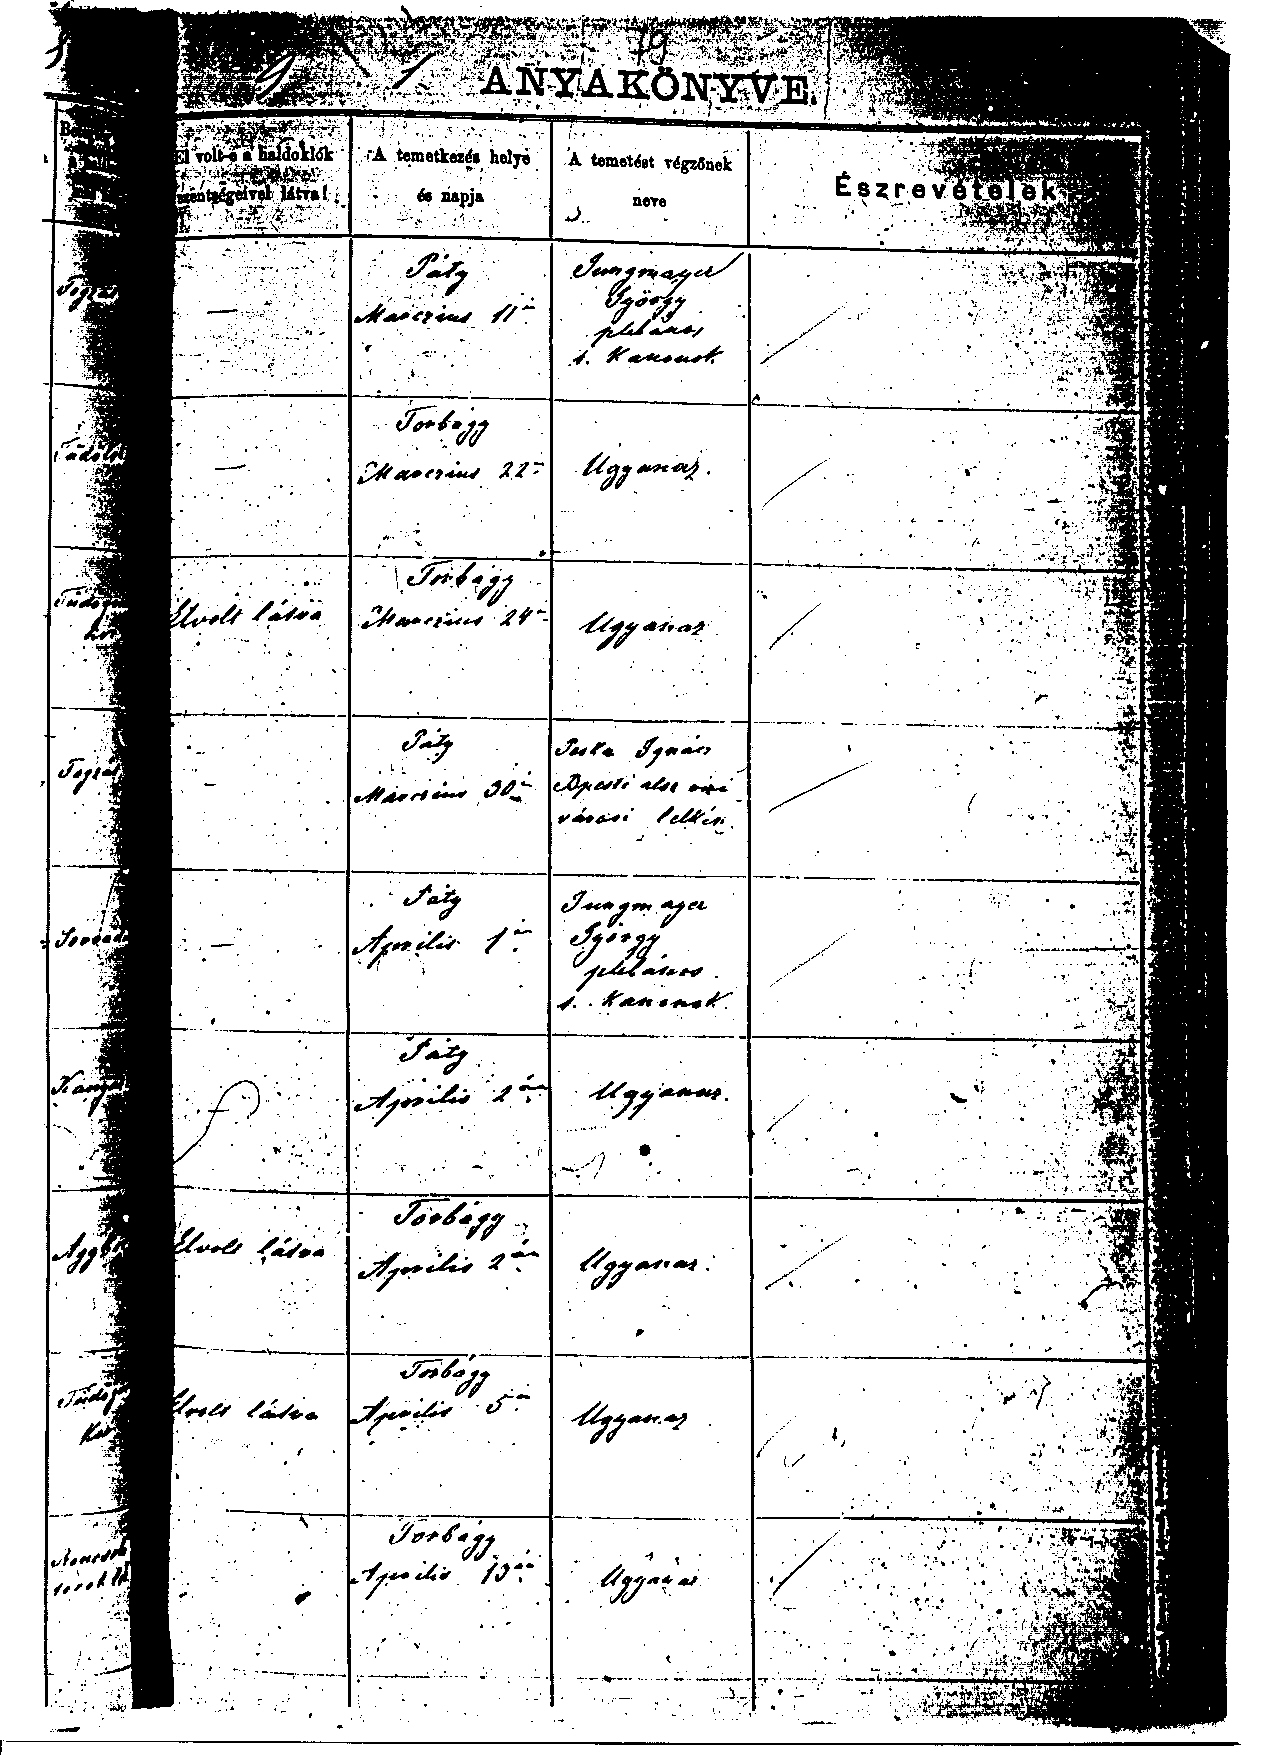 79
ANYAKÖNYVE.
El volt-e a haldoklók
szentségeivel látva?
A temetkezés helye
és napja
A temetést végzőnek
neve
Észrevételek
Páty
Marczius 11én
Jungmayer
György
plébános
s. Kanonok
Torbágy
Marczius 22
Ugyanaz.
Torbágy
Elvolt látva
Marczius 24
Ugyanaz
Páty
Marczius 30án
Ignácz
Bpesti
városi lelkész
Páty
Április 1én
Jungmayer
György
plébános
s. Kanonok
Páty
Április 2án
Ugyanaz.
Torbágy
Elvolt látva
Április 2án
Ugyanaz.
Torbágy
Elvolt látva
Április 5én
Ugyanaz
Torbágy
Április 13án
Ugyanaz